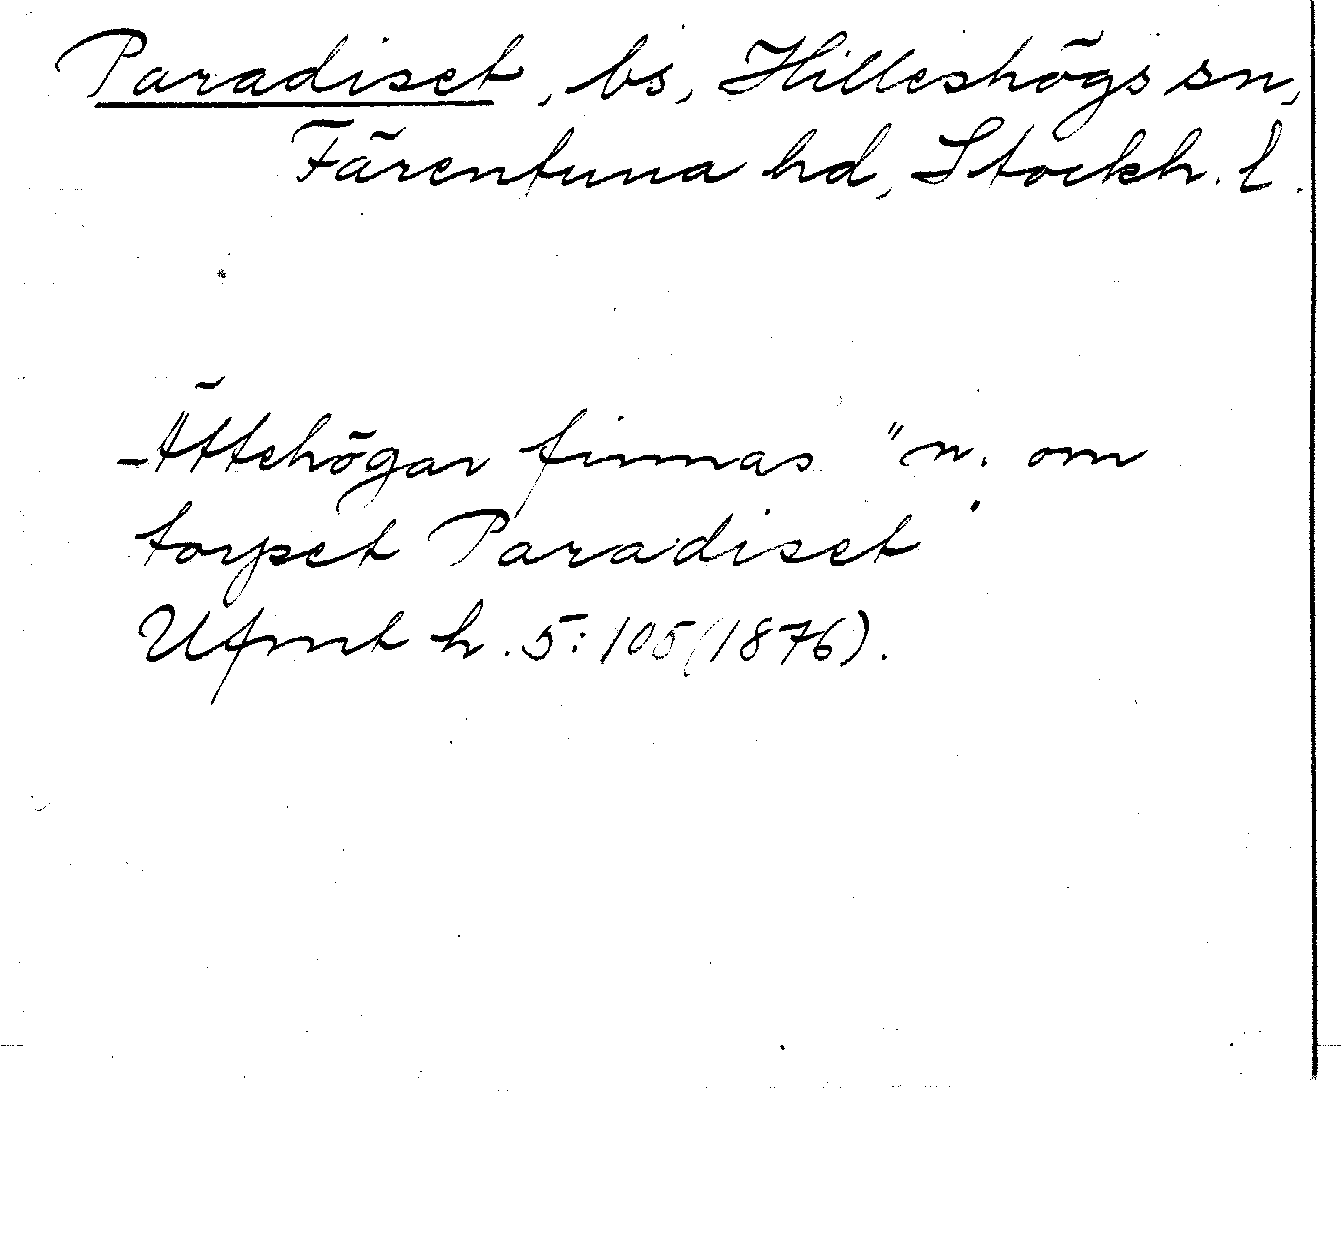 Paradiset, bs, Hilleshögs sn,
Färentuna hd, Stockh. l.
Ättehögar finnas "n. om
torpet Paradiset"
Ufmt h. 5:105 (1876).